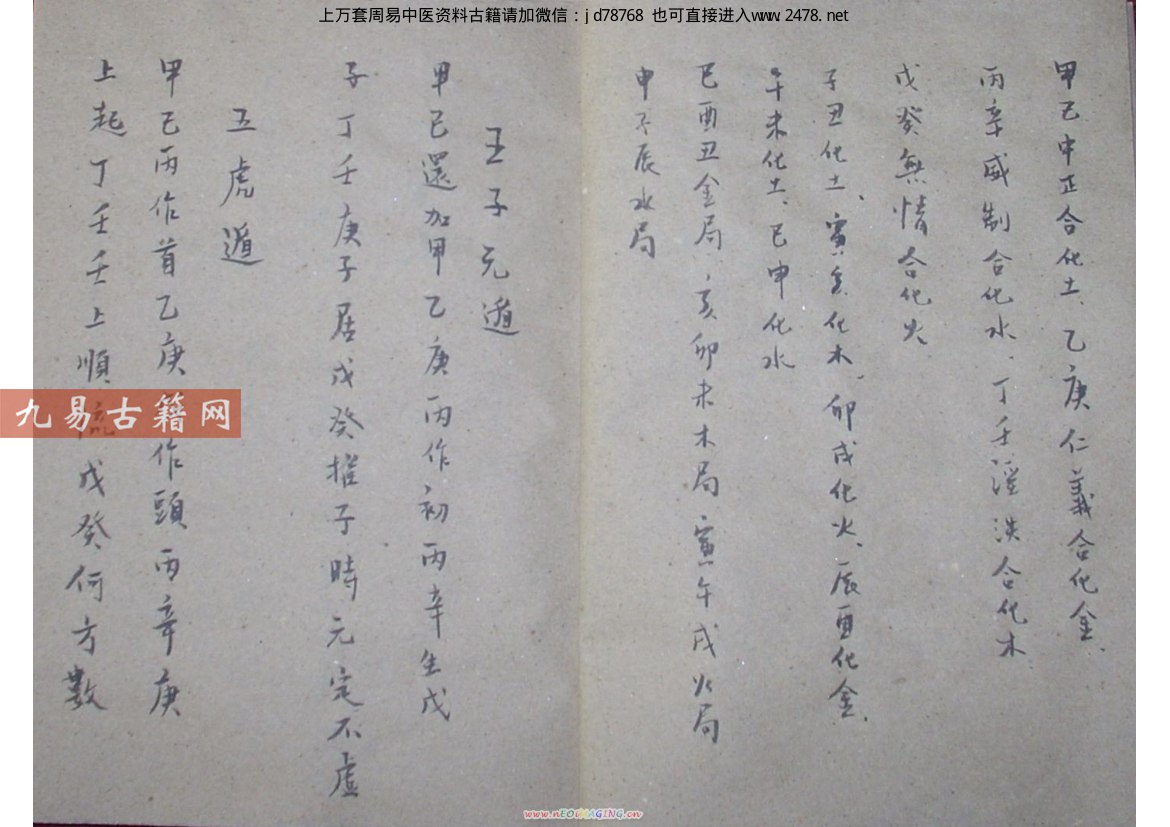 上万套周易中医资料古籍请加微信：jd78768 也可直接进入www.2478.net
甲己中正合化土、乙庚仁義合化金、
丙辛威制合化水、丁壬淫泆合化木
戊癸無情合化火
子丑化土、寅亥化木、卯戌化火、辰酉化金、
午未化土、巳申化水
巳酉丑金局 亥卯未木局 寅午戌火局
申子辰水局
五子元遁
甲己還加甲乙庚丙作初丙辛生戊
子丁壬庚子居戊癸推子時元定不虛
五虎遁
甲己丙作首乙庚作頭丙辛庚
上起丁壬壬上順流戊癸何方數
九易古籍网
www.nEOiMAGING.cn